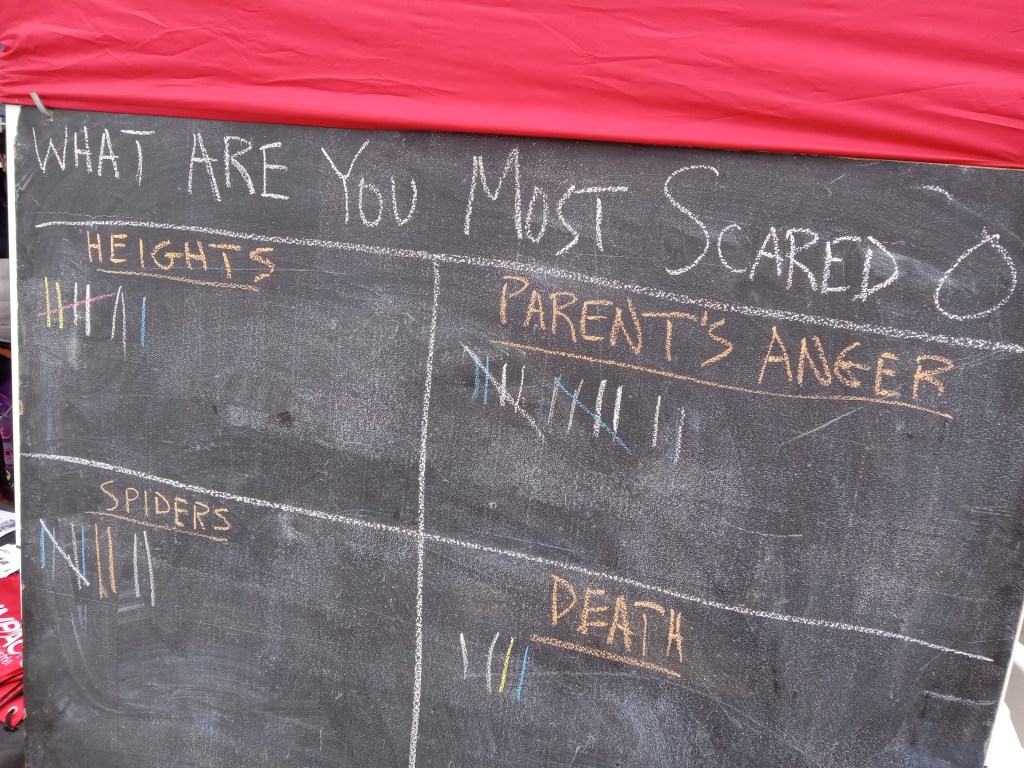 WHAT ARE YOU MOST SCARED O
HEIGHTS
PARENT'S ANGER
SPIDERS
DEATH